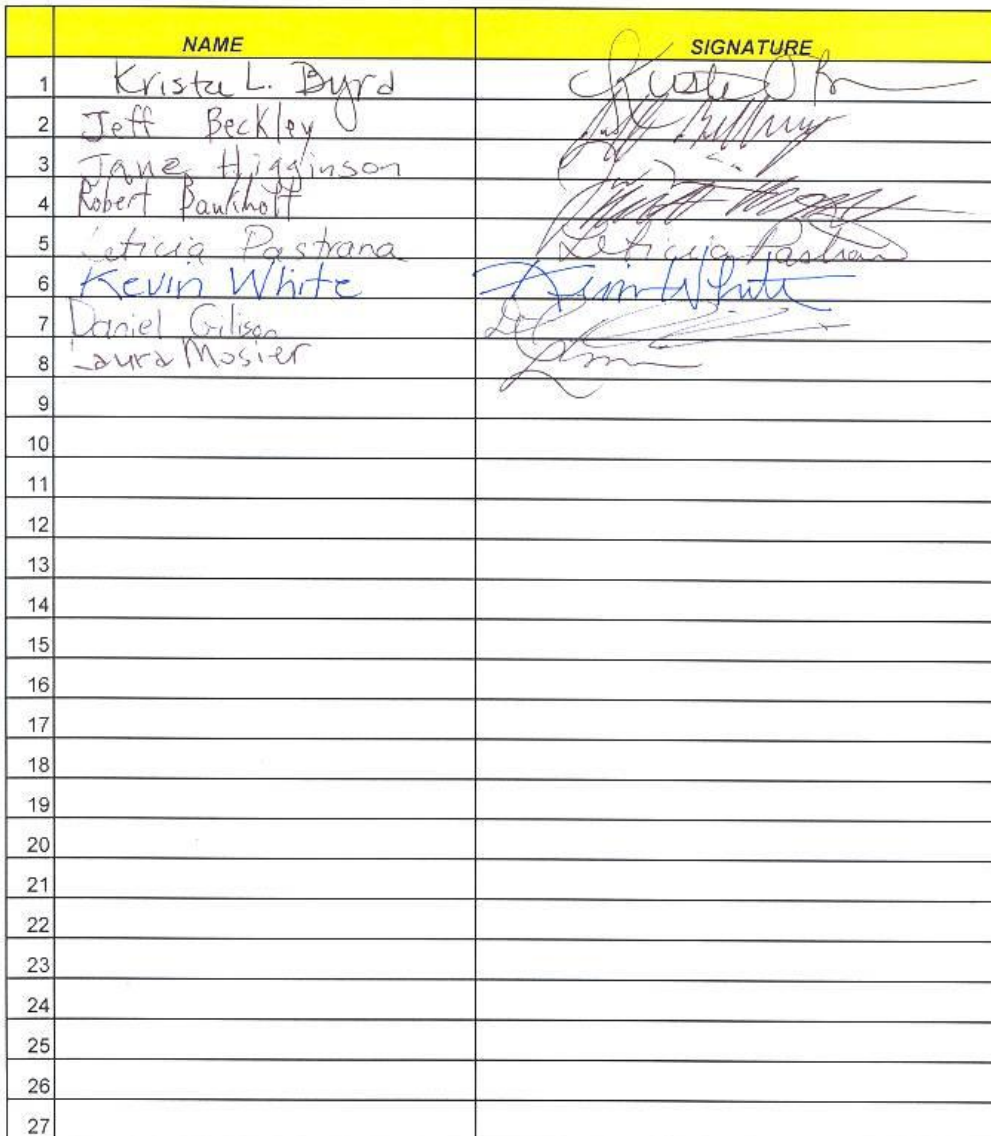 NAME SIGNATURE
1 Krista L. Byrd
2 Jeff Beckley
3 Jane Higginson
4 Robert Bankhoff
5 Leticia Pastrana Leticia Pastrana
6 Kevin White Kevin White
7 Daniel Gilison
8 Laura Mosier
9
10
11
12
13
14
15
16
17
18
19
20
21
22
23
24
25
26
27